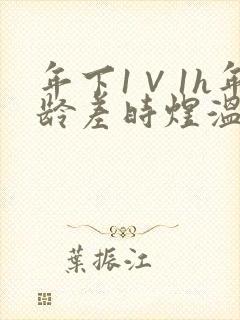 年下1V1h年
龄差时煜温
葉振江